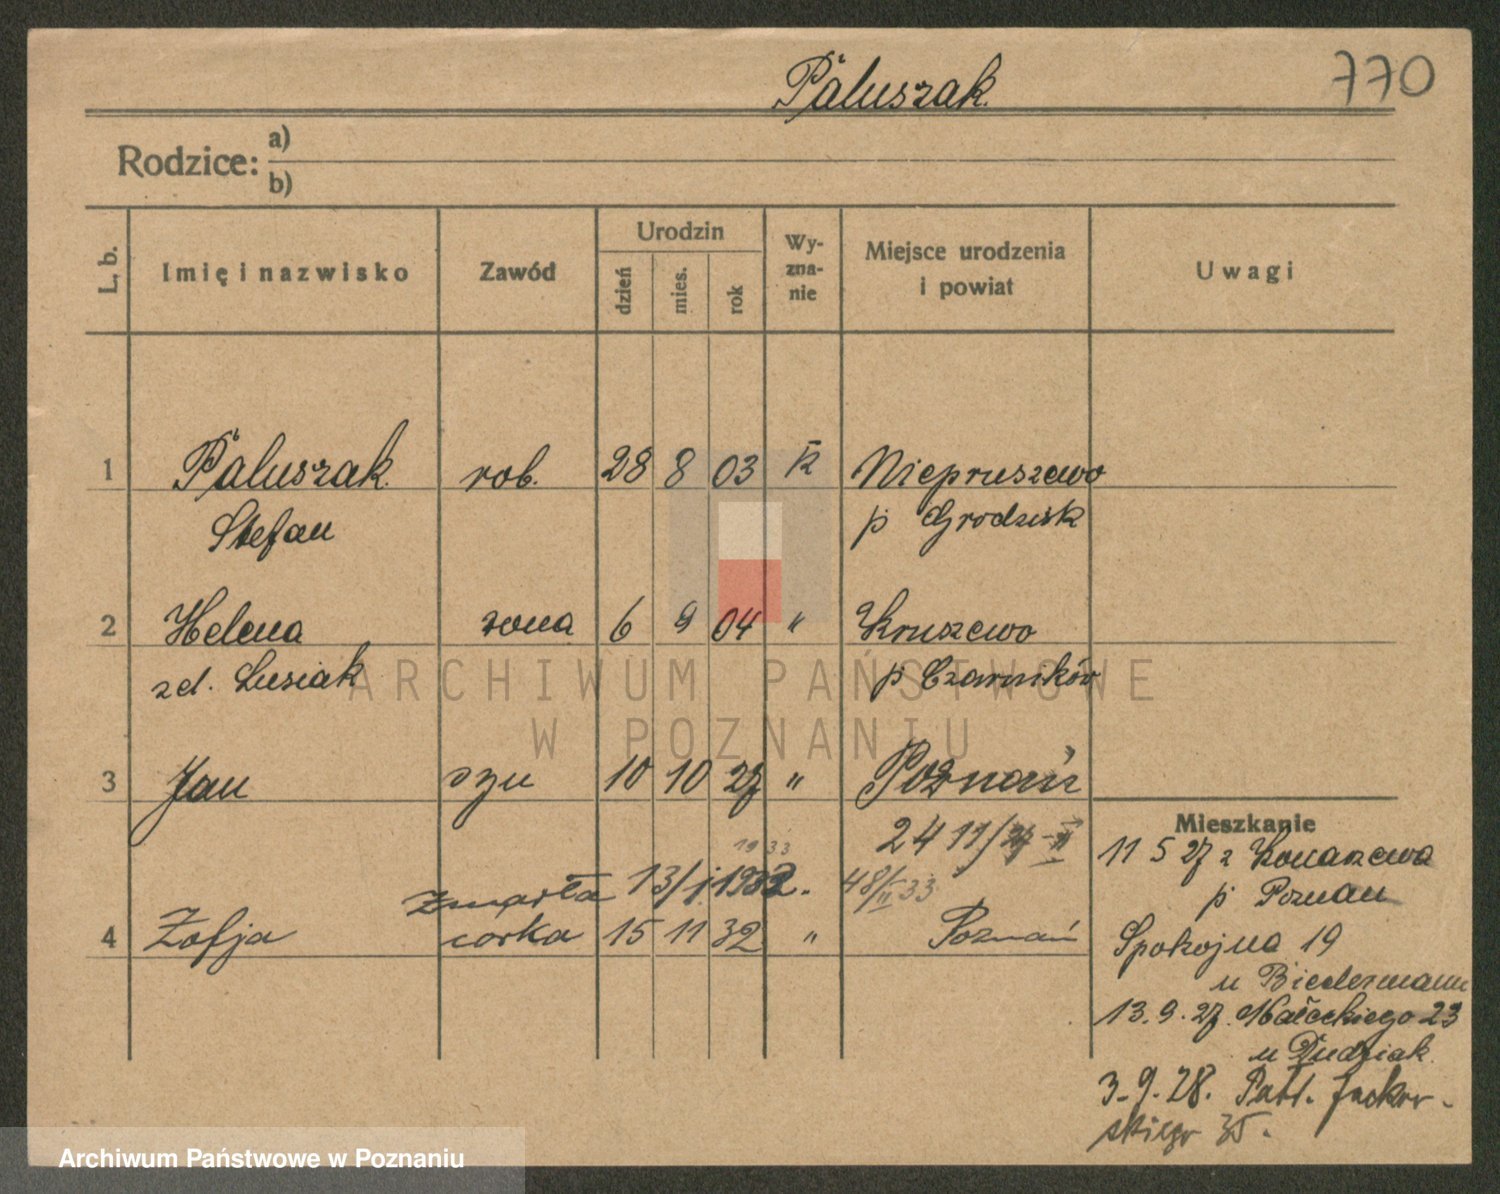 Paluszak.
770
Rodzice: a)
b)
L. b.
Imię i nazwisko
Zawód
Urodzin
dzień
mies.
rok
Wy-
zna-
nie
Miejsce urodzenia
i powiat
Uwagi
1 Paluszak rob. 28 8 03 k Niepruszewo
Stefan p Grodzisk
2 Helena żona 6 9 04 " Kruszewo
zd. Lusiak p Czarnków
ARCHIWUM PAŃSTWOWE
W POZNANIU
3 Jan syn 10 10 27 " Poznań
24 11/
1933
Zmarła 13/1. 1933.
48/II 33
4 Zofja corka 15 11 32 " Poznań
Mieszkanie
11 5 27 z Konarzewa
p Poznan
Spokojna 19
u Biedermann
13.9.27. Małeckiego 23
u Dudziak
3.9.28. Patr. Jackow-
skiego 35.
Archiwum Państwowe w Poznaniu